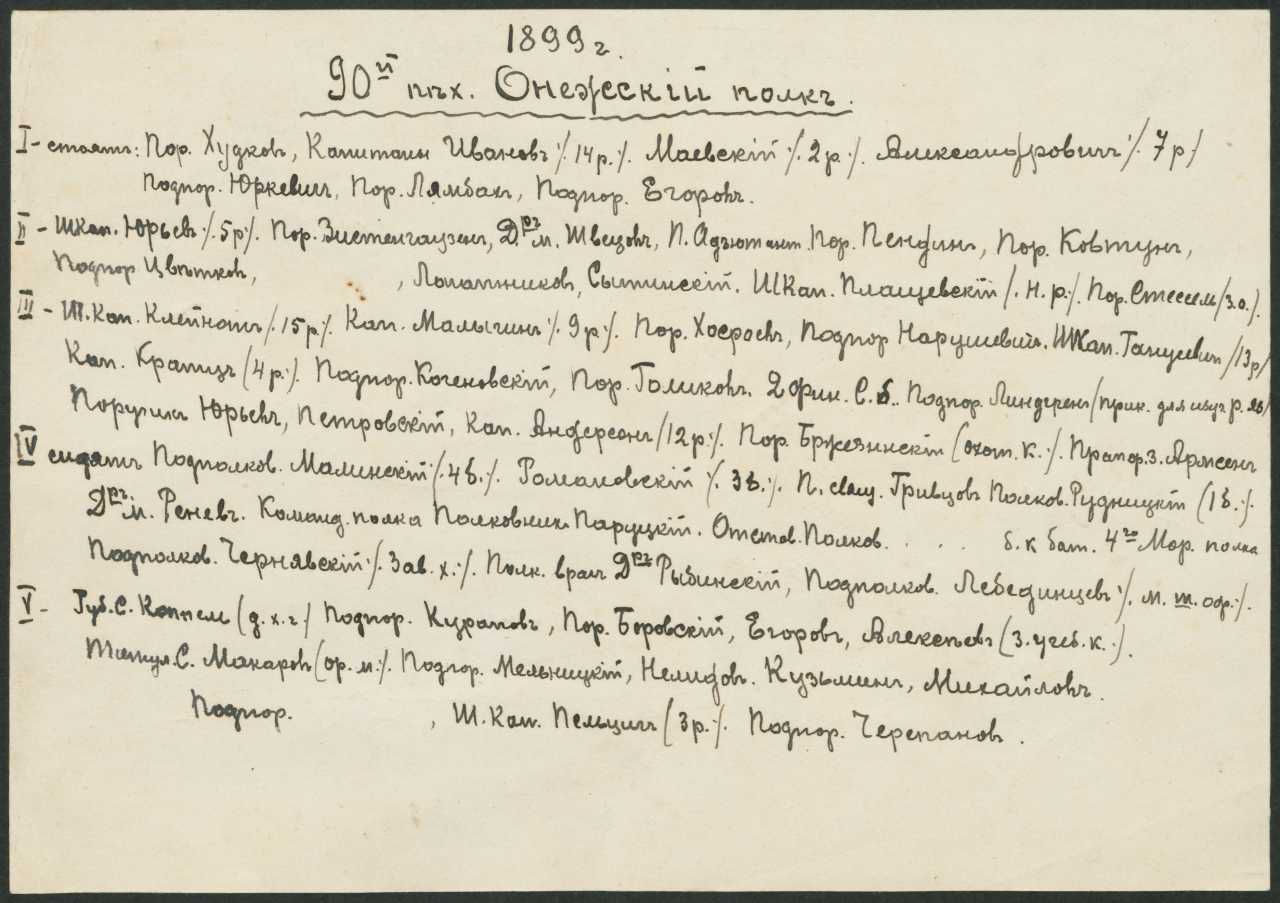 1899 г.
90ый пѣх. Онежскій полкъ.
I - стоятъ: Пор. Худковъ, Капитаны Ивановъ /. 14 р./. Маевскій /. 2 р./. Александровичъ /. 7 р/
Подпор. Юркевич, Пор. Лямбахъ, Подпор. Егоровъ.
II - Шкап. Юрьевъ /. 5 р/. Пор. Зистенгаузенъ, Дръ м. Швецовъ, П. Адъютант. Пор. Пендинъ, Пор. Ковтунъ,
Подпор Цвѣтковъ, , Лопатниковъ, Сытинскій. ШКап. Плащевскій /. Н. р./. Пор. Стессель /з.о./.
III - Ш.Кап. Клейнотъ /. 15 р./. Кап. Малыгинъ /. 9 р/. Пор. Хосроевъ, Подпор Нарушевичъ. ШКап. Ганусевич /13 р/
Кап. Кратцъ (4 р./. Подпор. Коченовскій, Пор. Голиковъ. 2 Фин. С. б. Подпор. Линдгренъ /прик. для изуч. р. яз/
Поручики Юрьевъ, Петровскій, Кап. Андерсонъ /12 р./. Пор. Бржезинскій (охот. к./. Прапор. з. Армсенъ
IV сидятъ Подполков. Малинскій /. 4 б./. Романовскій /. 3 б./. П. свящ. Гривцовъ Полков. Рудницкій (1 б./.
Дръ м. Реневъ. Команд. полка Полковник Паруцкій. Отстав. Полков. . . . б. к бат. 4го Мор. полка
Подполков. Чернявскій /. Зав. х./. Полк. врач Дръ Рыбинскій, Подполков. Лебединцевъ /. м. ш. офр./.
V - Губ. С. Коппель (д. х. ч./ Подпор. Кураповъ, Пор. Боровскій, Егоровъ, Алексѣевъ (з. учеб. к./.
Титул. С. Макаровъ (ор. м./. Подпор. Мельницкій, Нелидовъ. Кузьминъ, Михайловъ.
Подпор. , Ш. Кап. Пельцичъ (3 р./. Подпор. Черепановъ.